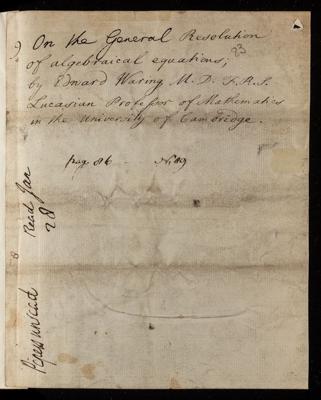 9) On the General Resolution
of algebraical equations; 23
by Edward Waring M.D. F.R.S.
Lucasian Professor of Mathematics
in the University of Cambridge.
pag 86 No. 19
Read Jan
28